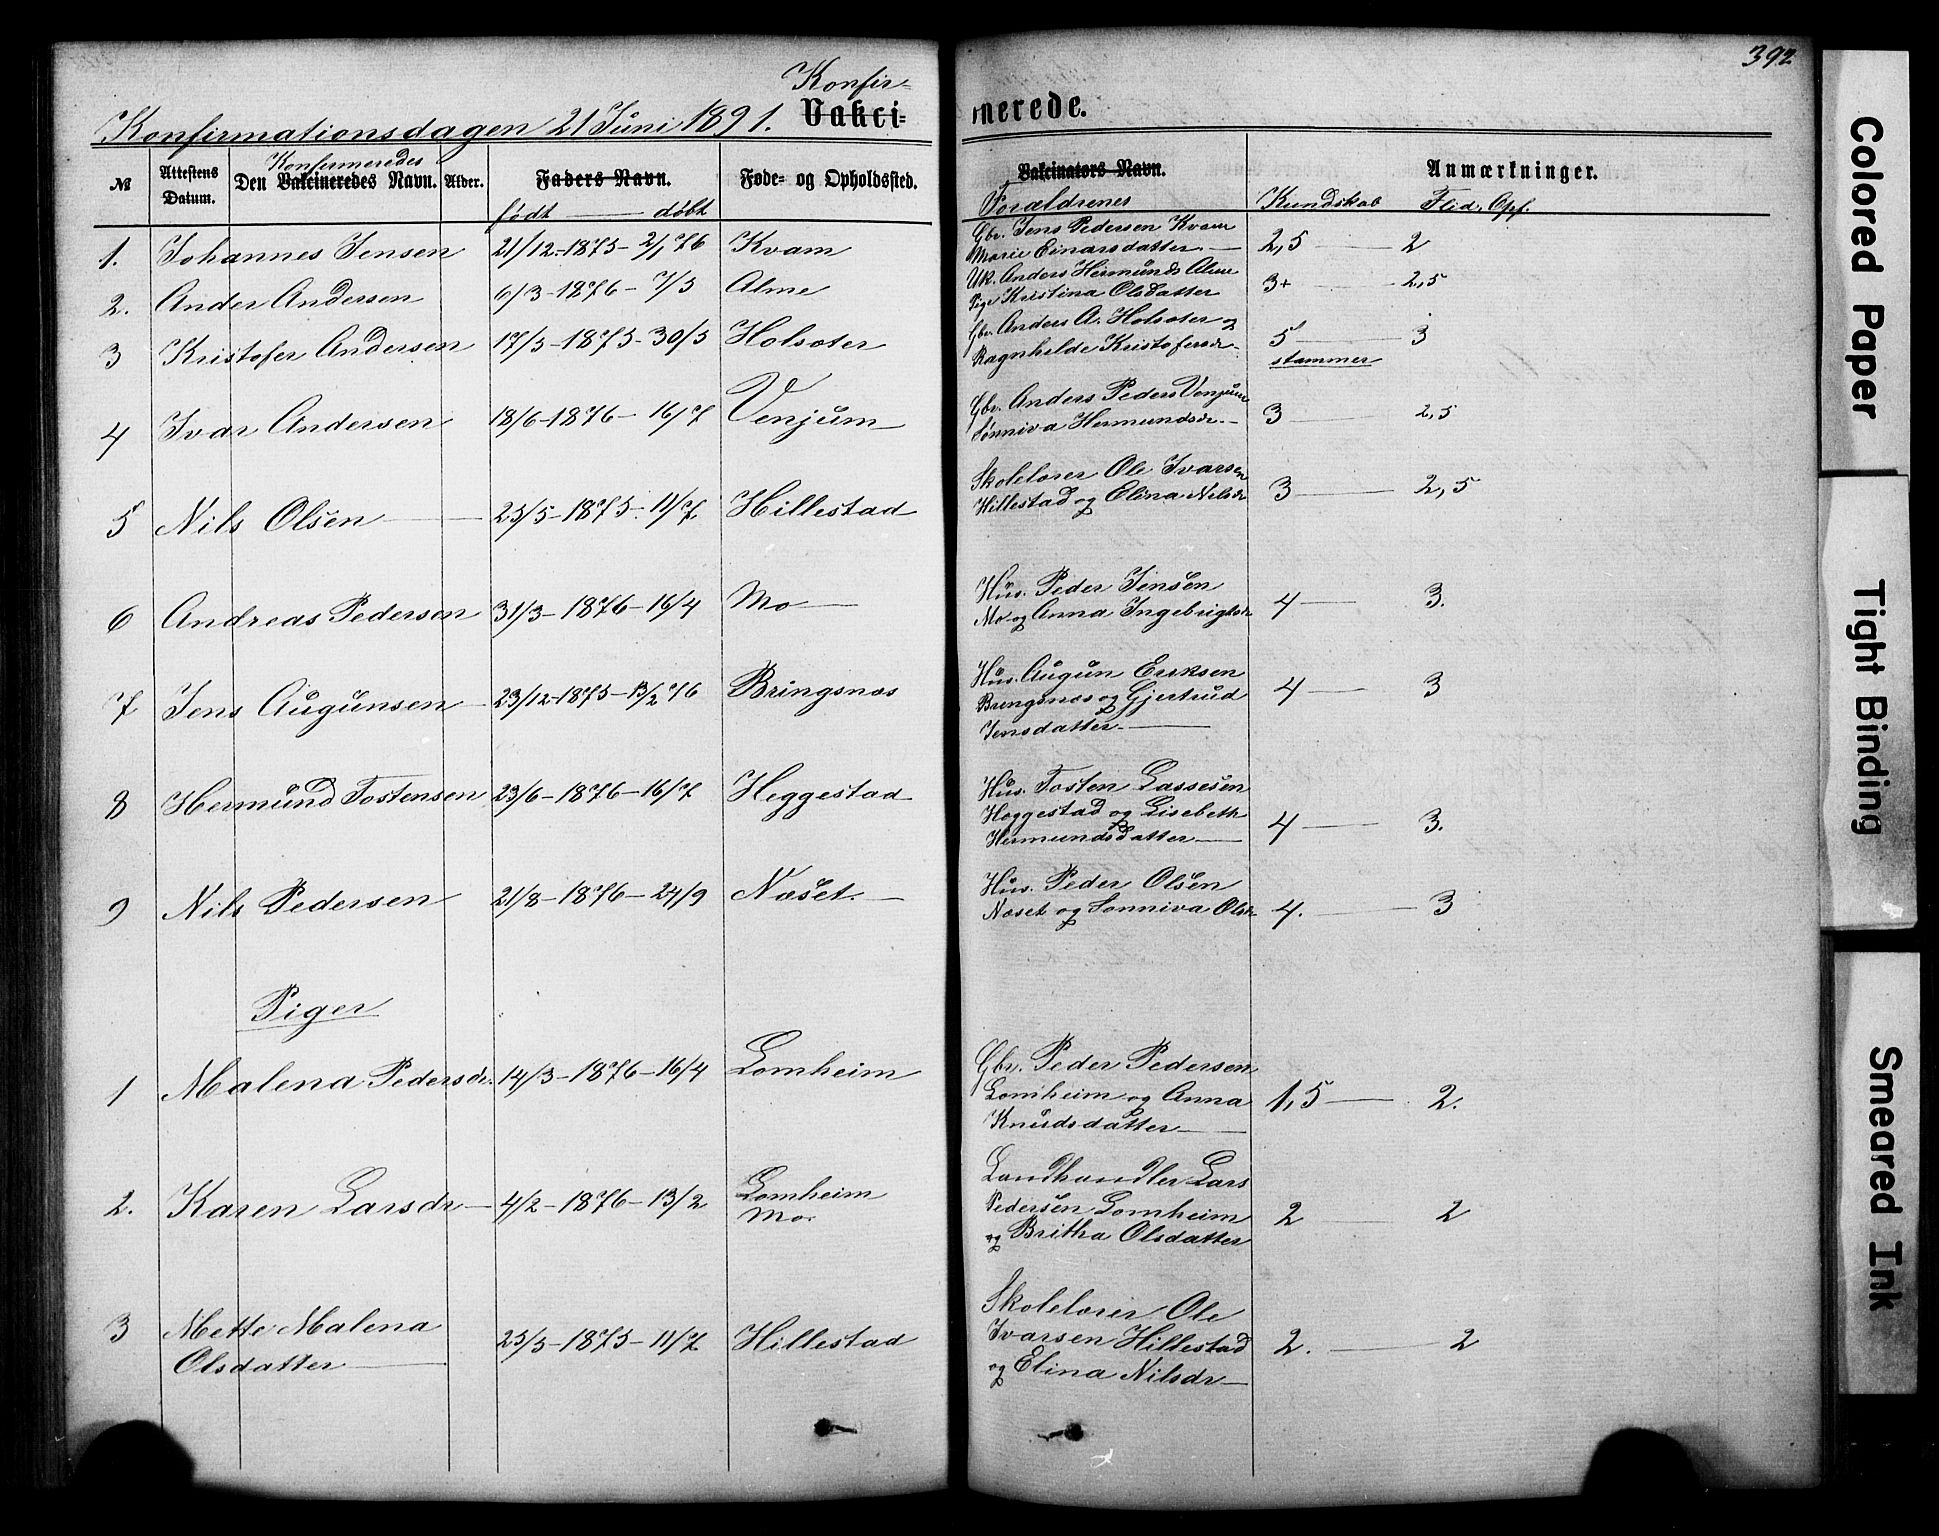 392
Konfir-
Konfirmationsdagen 21 Juni 1891. Vakci-
nerede.
№
Attestens Datum.
Konfirmeredes
Den Vakcineredes Navn.
Alder.
Faders Navn.
født — døbt
Føde- og Opholdssted.
Vakcinators Navn.
Forældrenes
Anmærkninger.
Kundskab Flid, Opf.
1. Johannes Jensen 21/12-1875-2/1 76 Kvam
Gbr. Jens Pedersen Kvam
Marie Einarsdatter — 2,5 — 2
2. Ander Andersen 6/3-1876-7/5 Alme
Uk. Anders Hermunds Alme
Pige Kristina Olsdatter 3+ — 2,5
3 Kristofer Andersen 17/5-1875-30/5 Holsæter
Gbr. Anders A. Holsæter og
Ragnhilde Kristofersdr. 5 — 3
stammer
4 Ivar Andersen 18/6-1876-16/7 Venjum
Gbr. Anders Peders Venjum
Sønniva Hermundsdr. — 3 — 2,5
5 Nils Olsen — 25/5-1875-11/7 Hillestad
Skolelærer Ole Ivarsen
Hillestad og Elina Nilsdr 3 — 2,5
6 Andreas Pedersen 31/3-1876-16/4 Mo —
Hus. Peder Jensen
Mo og Anna Ingebrigtsdr 4 — 3.
7 Jens Augunsen — 23/12-1875-13/2 76 Bringsnæs
Hus. Augun Eriksen
Bringsnæs og Gjertrud
Jensdatter — 4 — 3
8 Hermund Tostensen 23/6-1876-16/7 Heggestad
Hus. Tosten Lassesen
Heggestad og Lisebeth
Hermundsdatter — 4 — 3.
9 Nils Pedersen 21/8-1876-24/9 Næset. —
Hus. Peder Olsen
Næset og Sønniva Olsdr 4. — 3
Piger
1 Malena Pedersdr. 14/3-1876-16/4 Lomheim
Gbr. Peder Pedersen
Lomheim og Anna
Knudsdatter — 1,5 — 2.
2. Karen Larsdr — 4/2-1876-13/2 Lomheim
Mo.
Landhandler Lars
Pedersen Lomheim
og Britha Olsdatter 2 — 2
3 Mette Malena
Olsdatter — 25/5-1875-11/7 Hillestad
Skolelærer Ole
Ivarsen Hillestad
og Elina Nilsdr — 2. — 2
Colored Paper
Tight Binding
Smeared Ink